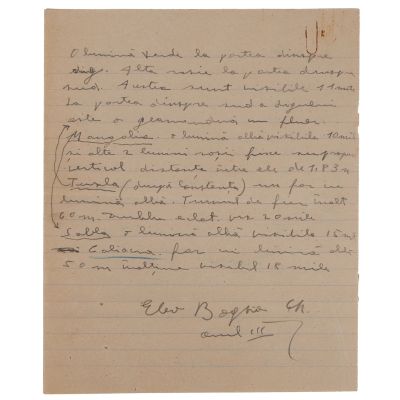 O lumină verde la partea dinspre
dig. Alta roșie la partea dinspre
sud. Acestea sunt vizibile 11 mile
La partea dinspre sud a digului
este o geamandură cu fluer.
Mangalia. o lumină albă vizibilă 10 mile
și alte 2 lumini roșii fixe suprapuse
vertical distanța între ele de 1,83 m
Tuzla (după Constanța) un far cu
lumină albă. Turnul de fier înalt
60 m. eclat. viz 20 mile
Sabla o lumină albă vizibilă 15 mile
Caliacra far cu lumină albă
50 m înălțime vizibil 18 mile
Elev Ch.
anul III